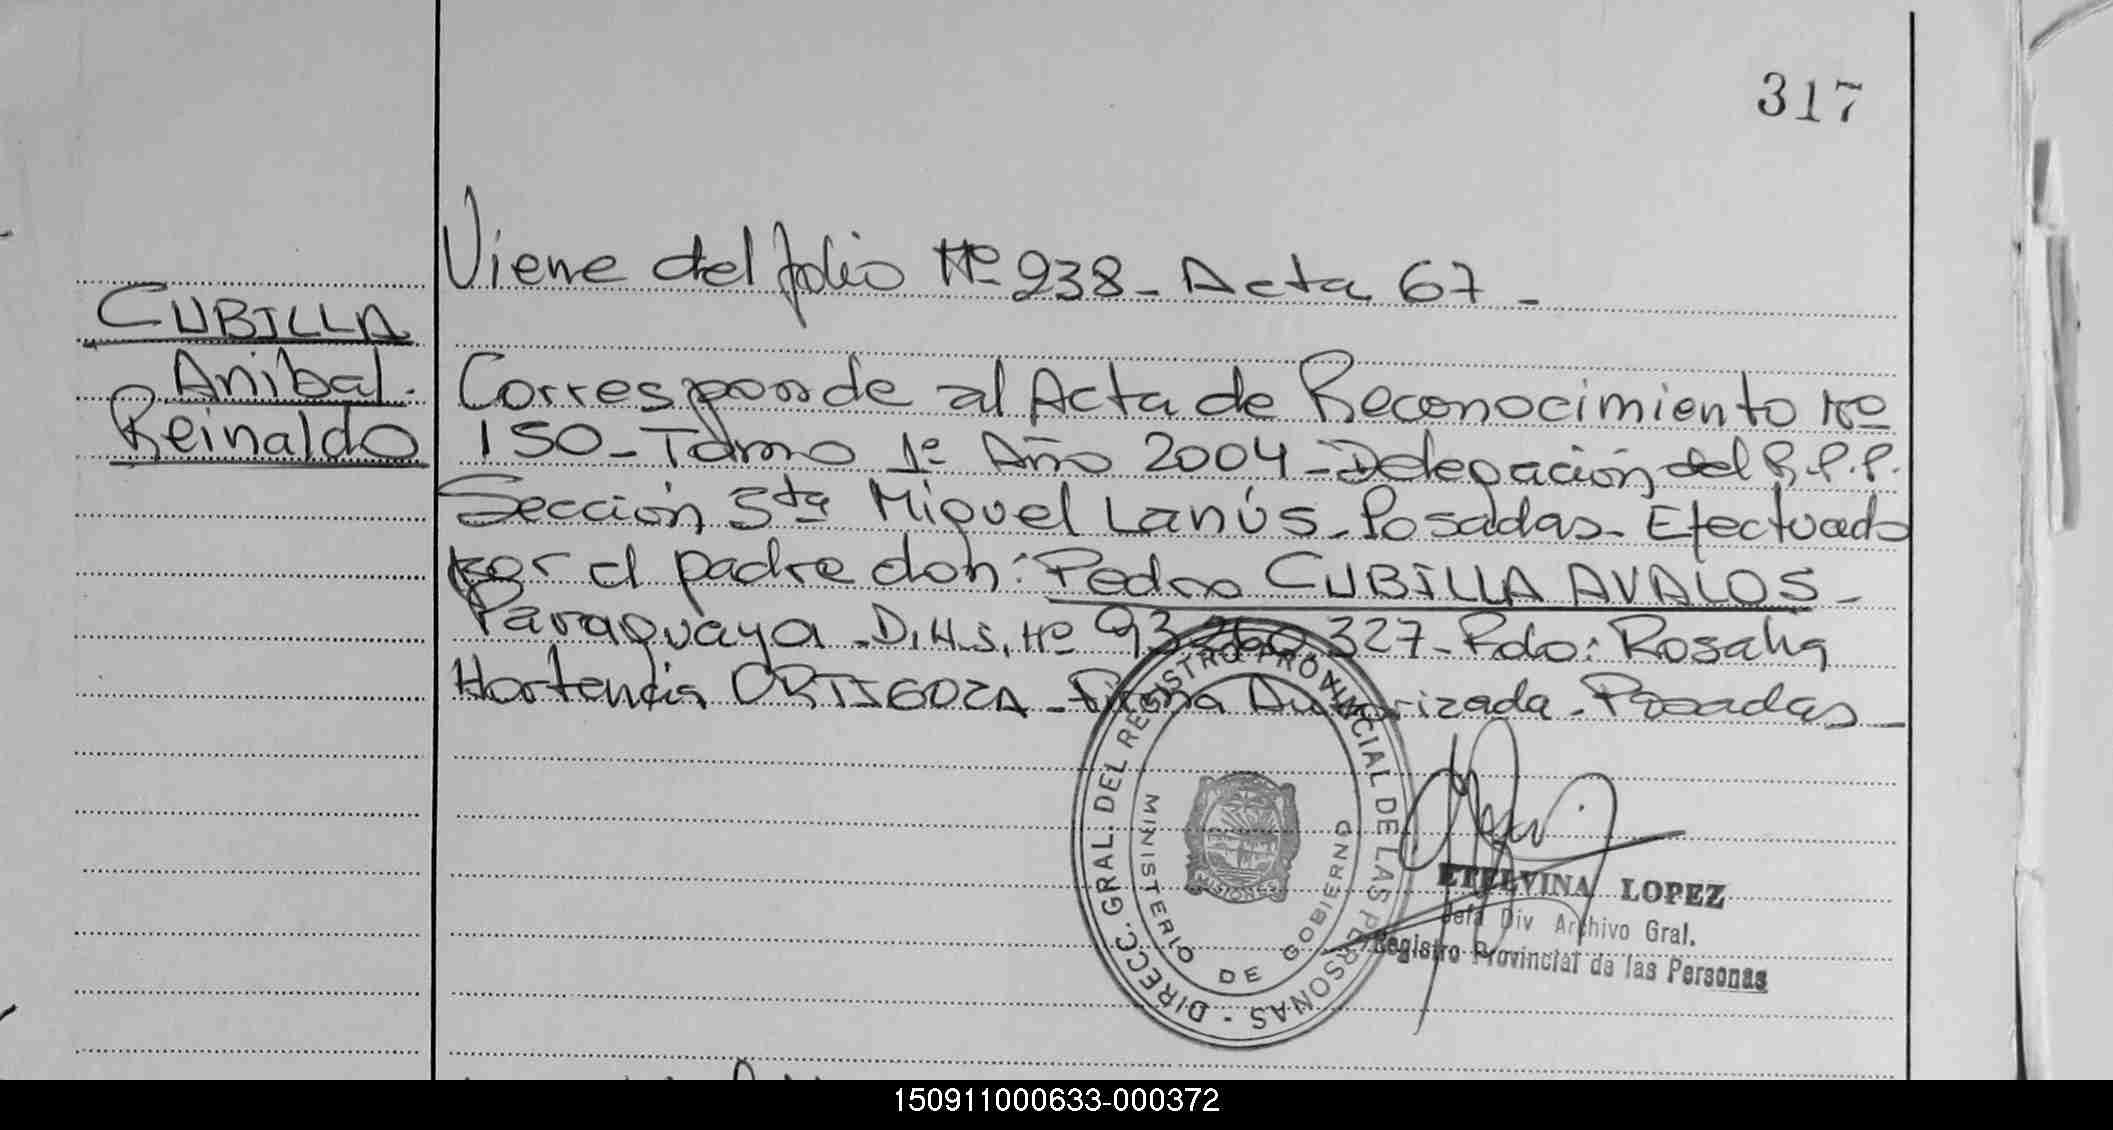 317
Viene del folio Nº 238 - Acta 67 -
CUBILLA
Anibal.
Reinaldo
Corresponde al Acta de Reconocimiento Nº
150 - Tomo 1º Año 2004 - Delegación del R.P.P.
Sección 5ta Miguel Lanús - Posadas - Efectuado
por el padre don: Pedro CUBILLA AVALOS -
Paraguaya - D.N.I. Nº 327 - Fdo: Rosalia
Hortencia ORTIGOZA - Firma Autorizada - Posadas -
DIRECC. GRAL. DEL REGISTRO PROVINCIAL DE LAS PERSONAS -
MINISTERIO DE GOBIERNO
MISIONES
ETELVINA LOPEZ
Jefa Div Archivo Gral.
Registro Provincial de las Personas
150911000633-000372